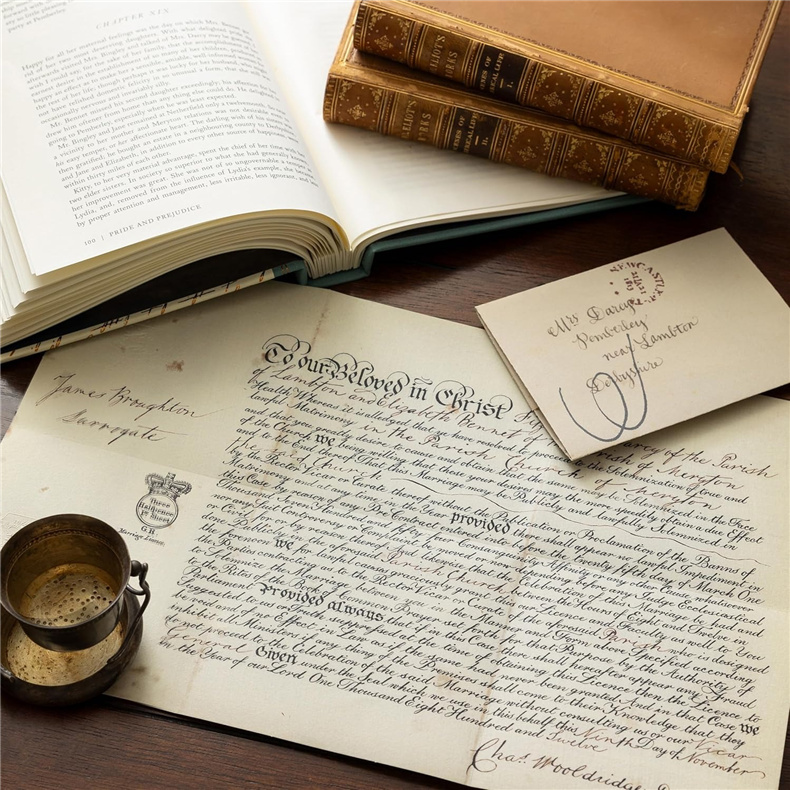 CHAPTER XIX
Happy for all her maternal feelings was the day on which Mrs. Bennet
rid of her two most deserving daughters. With what delighted
afterwards visited Mrs. Bingley and talked of Mrs. Darcy may be
I wish I could say, for the sake of her family, that the accomplishment
earnest desire in the establishment of so many of her children,
happy an effect as to make her a sensible, amiable, well-informed woman
the rest of her life; though perhaps it was lucky for her husband,
not have relished domestic felicity in so unusual a form, that she still
occasionally nervous and invariably silly.
Mr. Bennet missed his second daughter exceedingly; his affection for
drew him oftener from home than any thing else could do. He delighted
going to Pemberley, especially when he was least expected.
Mr. Bingley and Jane remained at Netherfield only a twelvemonth. So
a vicinity to her mother and Meryton relations was not desirable
his easy temper, or her affectionate heart. The darling wish of his sisters
then gratified; he bought an estate in a neighbouring county to Derbyshire
and Jane and Elizabeth, in addition to every other source of happiness,
within thirty miles of each other.
Kitty, to her very material advantage, spent the chief of her time with
two elder sisters. In society so superior to what she had generally known,
improvement was great. She was not of so ungovernable a temper
Lydia, and, removed from the influence of Lydia's example, she became
by proper attention and management, less irritable, less ignorant, and
| PRIDE AND PREJUDICE
ELIOT'S
WORKS
I.
ELIOT'S
WORKS
II.
NEWCASTLE
Mrs Darcy
Pemberley
near Lambton
Derbyshire
James Broughton
Surrogate
Three
Halfpence
G.R.
To our Beloved in Christ
of Lambton and Elizabeth Bennet of the Parish of Meryton
Health Whereas it is alledged that ye have resolved to proceed to the Solemnization of true and
lawful Matrimony in the Parish Church of Meryton
and that you greatly desire to cause and obtain that the same may be Solemnized in the Face
of the Church we being willing that those your desires may the more speedily obtain a due Effect
and to the End thereof That this Marriage may be Publicly and lawfully Solemnized in
the Church of Meryton
by the Rector Vicar or Curate thereof without the Publication or Proclamation of the Banns of
Matrimony and at any time of the Year provided there shall appear no lawful Impediment in
this Case by reason of any Pre Contract entered into before the twenty fifth day of March One
Thousand Seven Hundred and fifty four Consanguinity Affinity or any other Cause whatsoever
nor any Suit Controversy or Complaint be moved or now depending before any Judge Ecclesiastical
or Civil for or by reason thereof And likewise that the Celebration of this Marriage be had and
done Publicly in the aforesaid Parish Church between the Hours of Eight and Twelve in
the Forenoon we for lawful causes graciously grant this our Licence and Faculty as well to You
the Parties contracting as to the Rector Vicar or Curate of the aforesaid Parish who is designed
to Solemnize the Marriage between You in the Manner and Form above Specified according
to the Rites of the Book of Common Prayer set forth for that Purpose by the Authority of
Parliament Provided always that if in this case there shall hereafter appear any Fraud
suggested to us or Truth suppressed at the time of obtaining this Licence then the Licence to
be void and of no Effect in Law as if the same had never been granted And in that Case we
inhibit all Ministers if any thing of the Premises shall come to their Knowledge that they
do not proceed to the Celebration of the said Marriage without consulting us or our Vicar
General Given under the Seal which we use in this behalf this Ninth Day of November
in the Year of our Lord One Thousand Eight Hundred and twelve
Chas. Wooldridge